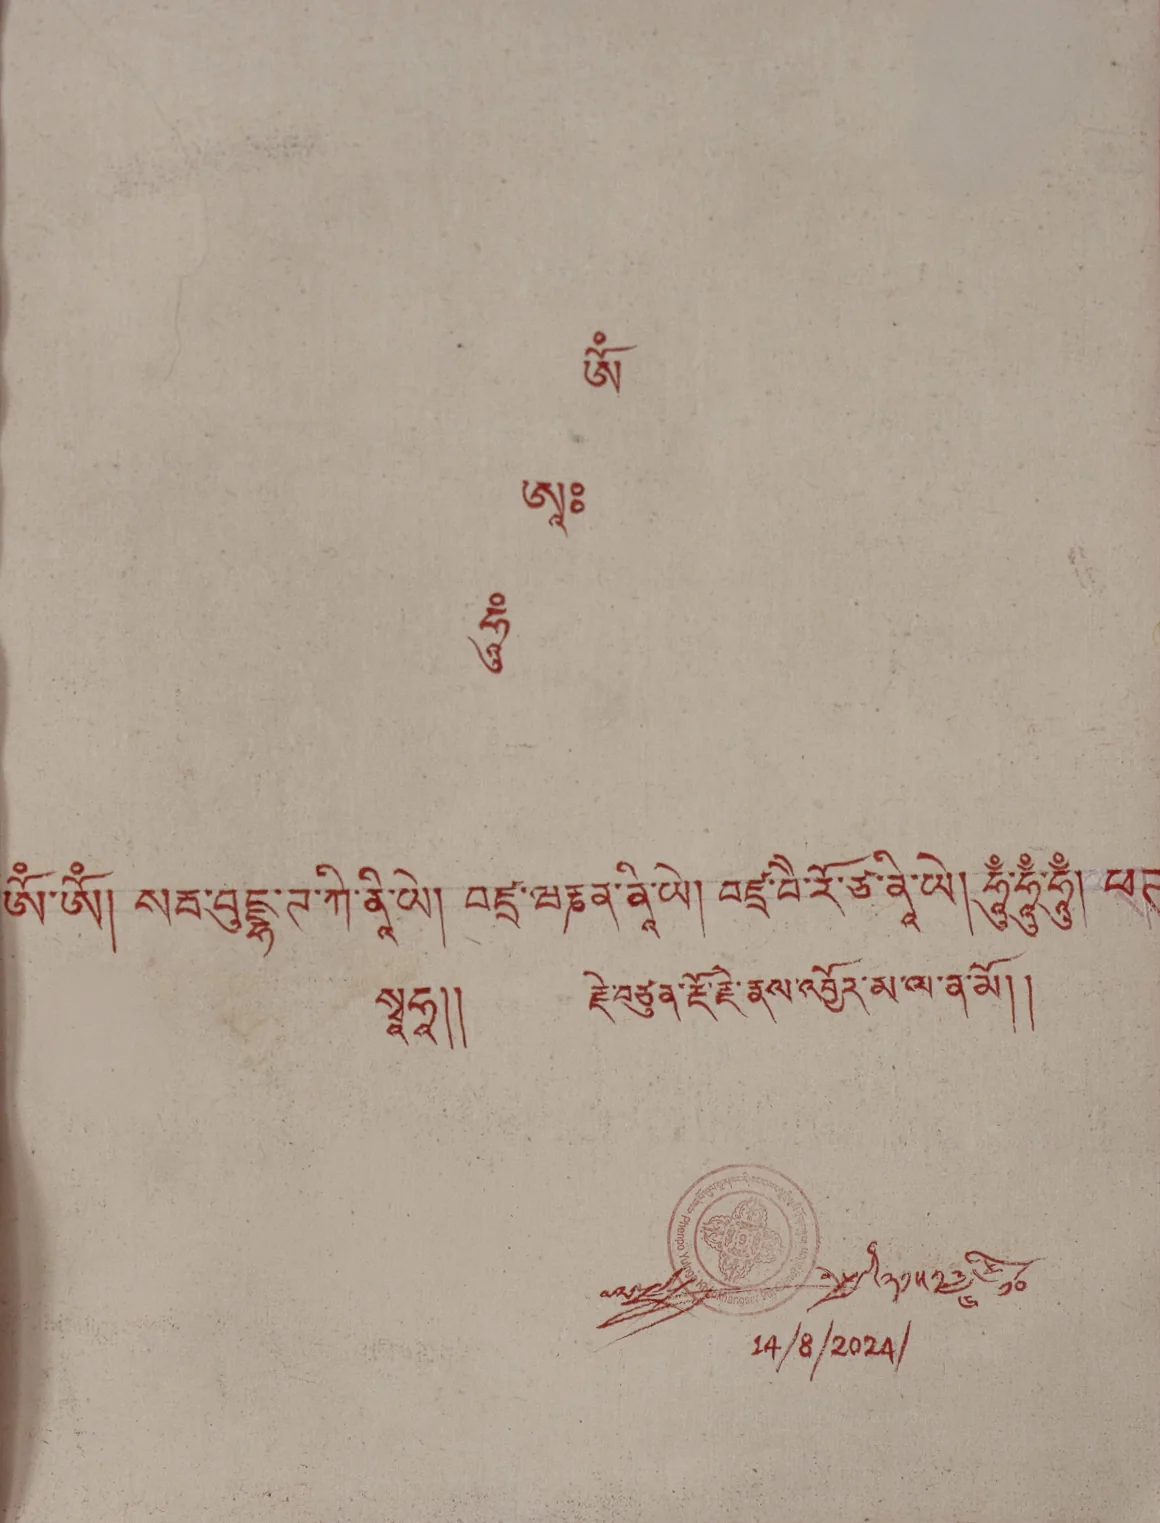 ཨོཾ
ཨཱཿ
ཧཱུྃ
ཨོཾ་ཨོཾ། སརྦ་བུདྡྷ་ཌ་ཀི་ནཱི་ཡེ། བཛྲ་ཝརྞན་ནཱི་ཡེ། བཛྲ་བཻ་རོ་ཙ་ནཱི་ཡེ། ཧཱུྃ་ཧཱུྃ་ཧཱུྃ། ཕཊ
སྭཱཧཱ།།
རྗེ་བཙུན་རྡོ་རྗེ་རྣལ་འབྱོར་མ་ལ་ན་མོ།།
Phenpo
14/8/2024/